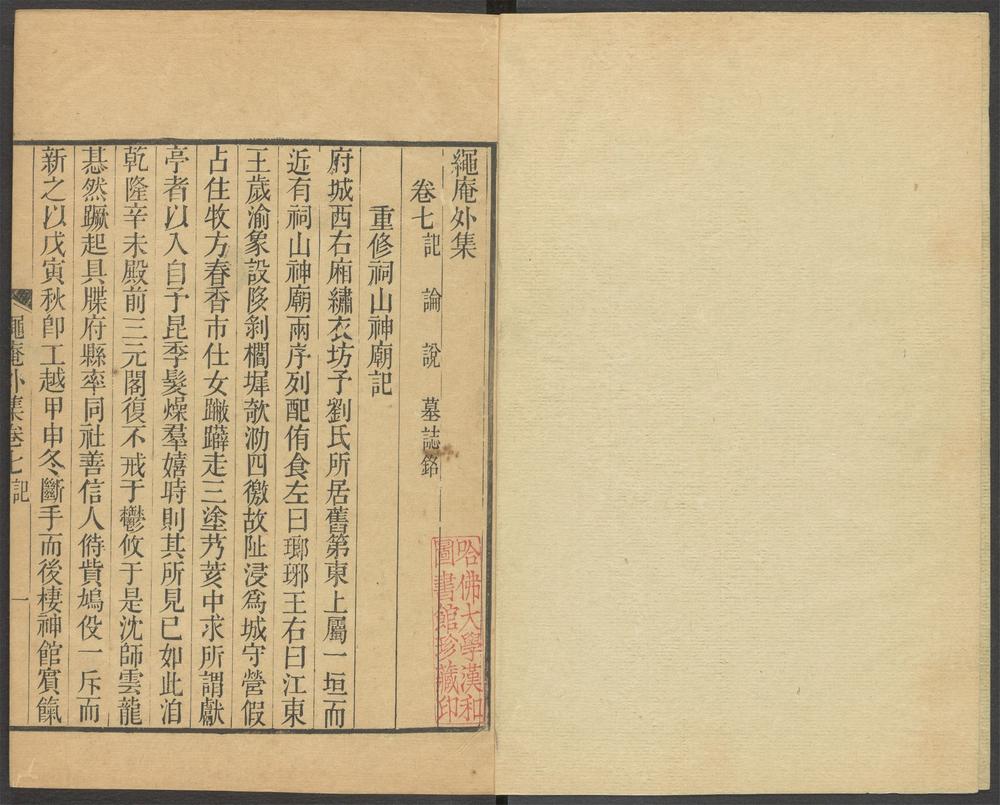 繩庵外集
卷七 記 論 說 墓誌銘
重修祠山神廟記
府城西右廂繡衣坊予劉氏所居舊第東上屬一垣而
近有祠山神廟兩序列配侑食左曰瑯琊王右曰江東
王歲渝象設陊剝櫊墀欹泐四徼故阯浸為城守營假
占住牧方春香市仕女躃躃走三塗艿荄中求所謂獻
亭者以入自予昆季髮燥羣嬉時則其所見已如此洎
乾隆辛未殿前三元閣復不戒于鬱攸于是沈師雲龍
惎然蹶起具牒府縣率同社善信人偫貲鳩役一斥而
新之以戊寅秋卽工越甲申冬斷手而後棲神館賓餼
繩庵外集卷七 記
一
哈佛大學漢和
圖書館珍藏印